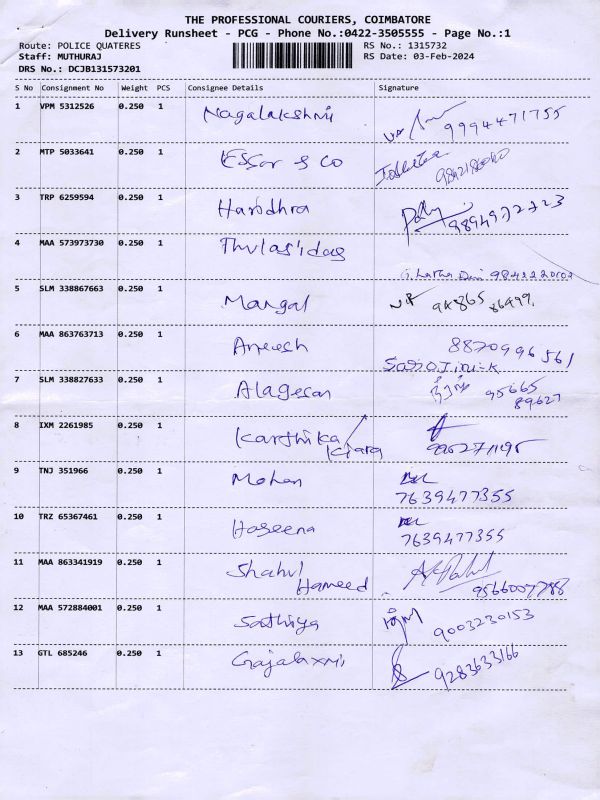 THE PROFESSIONAL COURIERS, COIMBATORE
Delivery Runsheet - PCG - Phone No.:0422-3505555 - Page No.:1
Route: POLICE QUATERES RS No.: 1315732
Staff: MUTHURAJ RS Date: 03-Feb-2024
DRS No.: DCJB131573201
S No Consignment No Weight PCS Consignee Details Signature
1 VPM 5312526 0.250 1 Nagalakshmi 9994471755
2 MTP 5033641 0.250 1 Essar & Co
3 TRP 6259594 0.250 1 Harodhra 9894972723
4 MAA 573973730 0.250 1 Thulasidas
G. Latha Devi 9843220102
5 SLM 338867663 0.250 1 Mangal 94865 86499
6 MAA 863763713 0.250 1 Aneesh 8870996561
SAROJINI-K
7 SLM 338827633 0.250 1 Alagesan 95665
89627
8 IXM 2261985 0.250 1 Karthika
Kiara
9 TNJ 351966 0.250 1 Mohan
7639477355
10 TRZ 65367461 0.250 1 Haseena
7639477355
11 MAA 863341919 0.250 1 Shahul
Hameed 9566007788
12 MAA 572884001 0.250 1 Sathiya 9003230153
13 GTL 685246 0.250 1 Gajalaxmi 9283633166